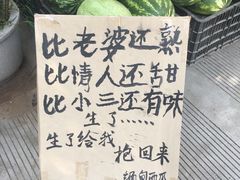 比老婆还熟
比情人还甜
比小三还有味
生了……
生了给我
抢回来